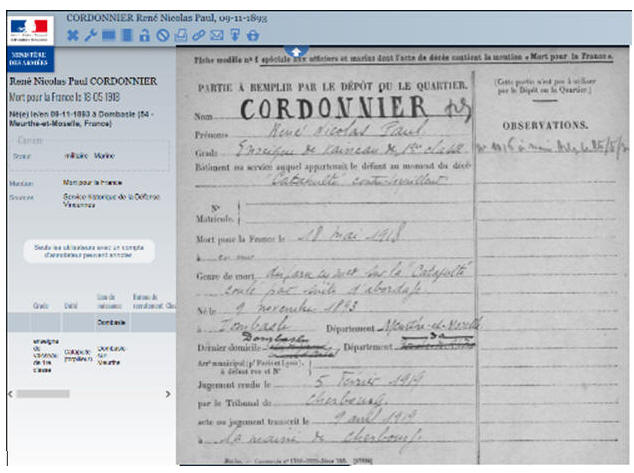 CORDONNIER René Nicolas Paul, 09-11-1893
MINISTÈRE
DES ARMÉES
René Nicolas Paul CORDONNIER
Mort pour la France le 18-05-1918
Né(e) le/en 09-11-1893 à Dombasle (54 -
Meurthe-et-Moselle, France)
Carrière
Statut militaire Marine
Mention Mort pour la France
Sources Service historique de la Défense,
Vincennes
Seuls les utilisateurs avec un compte
d'annotateur peuvent annoter
Grade Unité Lieu de naissance Bureau de recrutement
Dombasle
enseigne de vaisseau de 1re classe Catapulte Dombasle-sur-Meurthe
Fiche modèle n° 1 spéciale aux officiers et marins dont l'acte de décès contient la mention « Mort pour la France ».
PARTIE À REMPLIR PAR LE DÉPÔT OU LE QUARTIER.
(Cette partie n'est pas à utiliser
par le Dépôt ou le Quartier.)
OBSERVATIONS.
Nom CORDONNIER
Prénoms René Nicolas Paul
Grade Enseigne de Vaisseau de 1re classe
Bâtiment ou service auquel appartenait le défunt au moment du décès
"Catapulte" contre-torpilleur
N°
Matricule.
Mort pour la France le 18 mai 1918
à en mer
Genre de mort disparu en mer sur la "Catapulte"
coulé par suite d'abordage
Né le 9 novembre 1893
à Dombasle Département Meurthe-et-Moselle
Dernier domicile Dombasle Département
Arr<sup>t</sup> municipal (p<sup>r</sup> Paris et Lyon),
à défaut rue et N°
Jugement rendu le 5 février 1919
par le Tribunal de Cherbourg
acte ou jugement transcrit le 9 avril 1919
à la mairie de Cherbourg